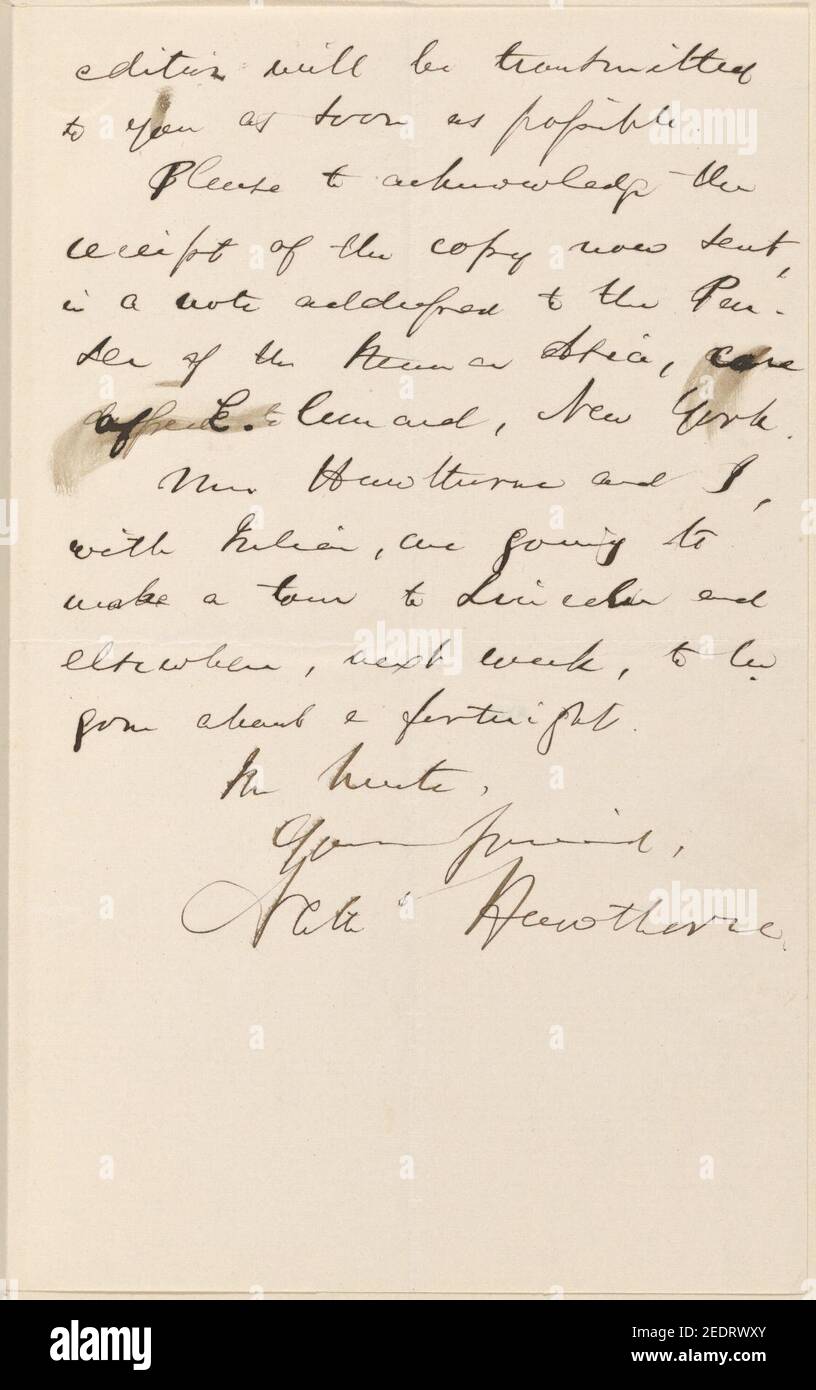 edition will be transmitted
to you as soon as possible.
Please to acknowledge the
receipt of the copy now sent,
in a note addressed to the Pur-
ser of the Steamer Asia, care
of E. Cunard, New York.
Mrs Hawthorne and I,
with Julian, are going to
make a tour to Lincoln and
elsewhere, next week, to be
gone about a fortnight.
In haste,
Your friend,
Nath Hawthorne.
alamy
Image ID: 2EDRWXY
www.alamy.com